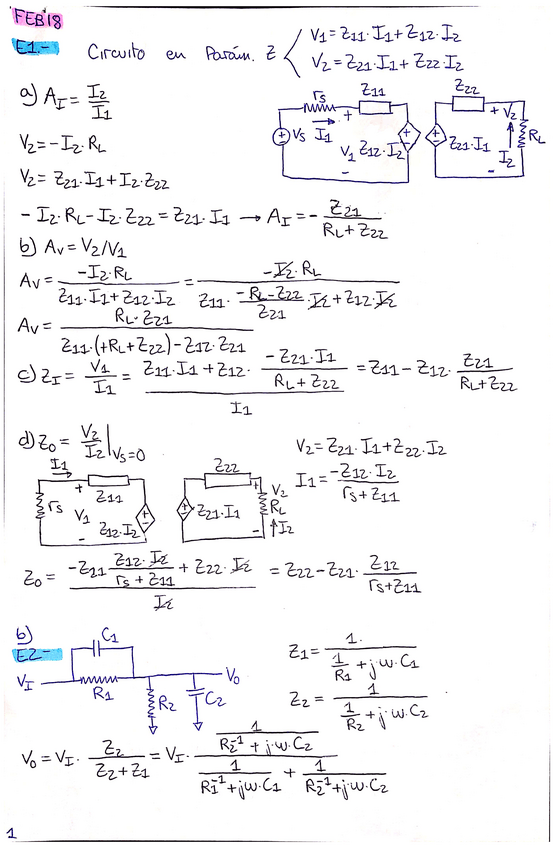 FEB'18
E1.- Circuito en Parám. Z { V1=Z11·I1+Z12·I2
V2=Z21·I1+Z22·I2
a) AI = I2/I1
rs Z11 Z22
+ + V2
Vs I1 V1 Z12·I2 Z21·I1 I2 RL
- -
V2=-I2·RL
V2=Z21·I1+I2·Z22
-I2·RL-I2·Z22=Z21·I1 → AI=- Z21/(RL+Z22)
b) Av=V2/V1
Av= -I2·RL/(Z11·I1+Z12·I2) = -I2·RL/(Z11· (-RL-Z22)/Z21 ·I2+Z12·I2)
Av= RL·Z21/(Z11·(+RL+Z22)-Z12·Z21)
c) ZI= V1/I1 = (Z11·I1+Z12· (-Z21·I1)/(RL+Z22))/I1 =Z11-Z12· Z21/(RL+Z22)
d) Zo= V2/I2 |Vs=0 V2=Z21·I1+Z22·I2
I1= -Z12·I2/(rs+Z11)
I1 Z11 Z22
rs + V1 Z12·I2 Z21·I1 + V2 RL I2
- -
Zo= (-Z21 Z12·I2/(rs+Z11) + Z22·I2)/I2 = Z22-Z21· Z12/(rs+Z11)
b)
E2-
C1
VI R1 R2 C2 Vo
Z1= 1/(1/R1 +j·w·C1)
Z2= 1/(1/R2 +j·w·C2)
Vo=VI· Z2/(Z2+Z1) =VI· (1/(R2^-1+j·w·C2))/(1/(R1^-1+jw·C1) + 1/(R2^-1+j·w·C2))
1